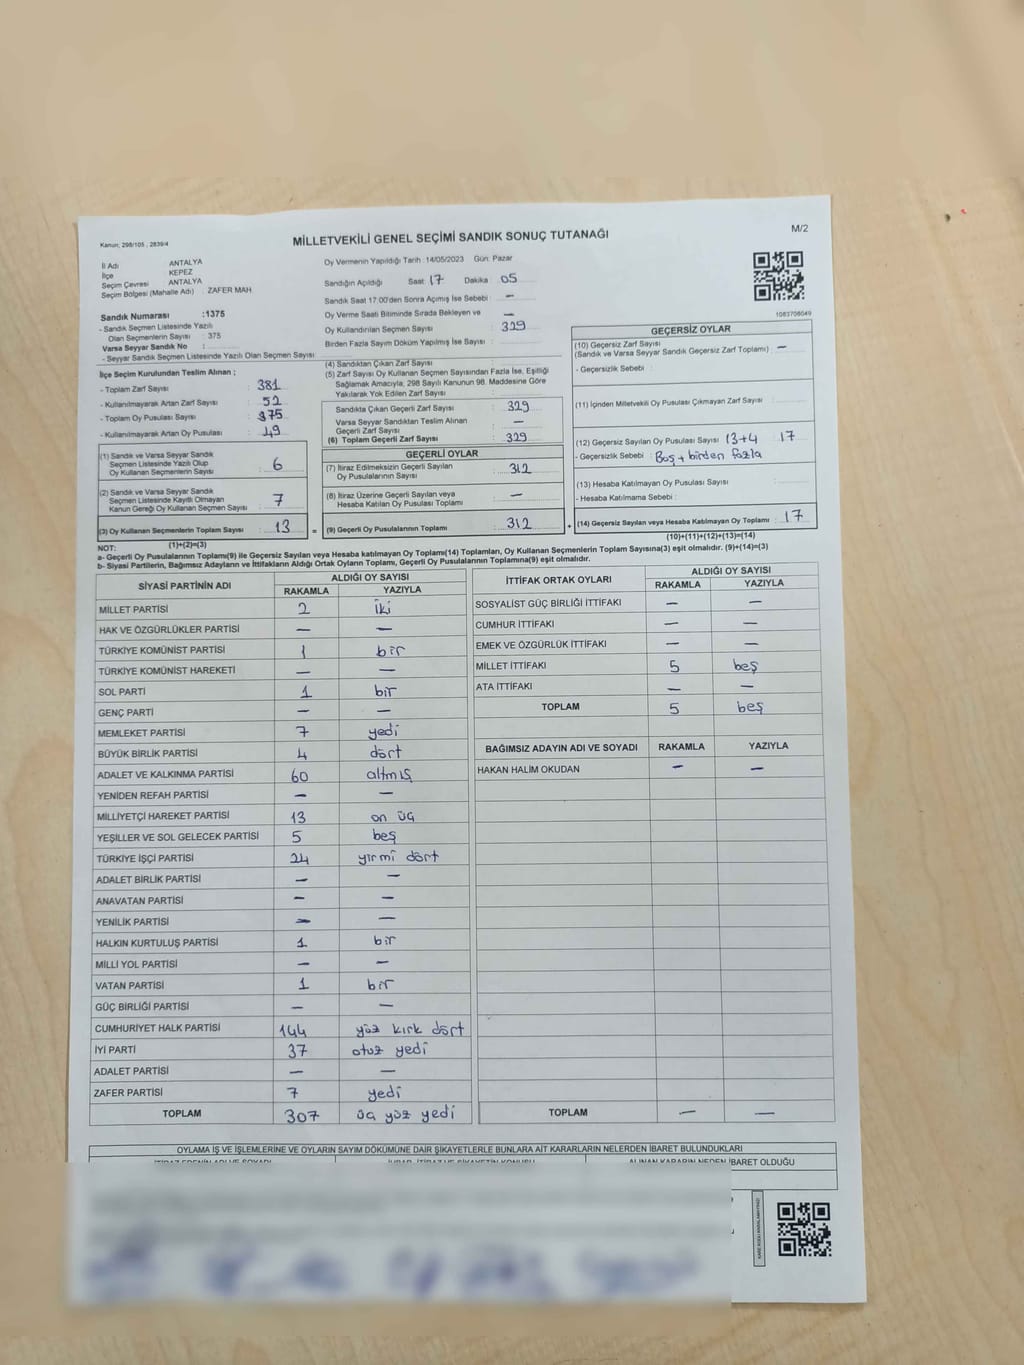 Kanun: 298/105 , 2839/4
MİLLETVEKİLİ GENEL SEÇİMİ SANDIK SONUÇ TUTANAĞI
M/2
İl Adı ANTALYA
İlçe KEPEZ
Seçim Çevresi ANTALYA
Seçim Bölgesi (Mahalle Adı) : ZAFER MAH
Sandık Numarası :1375
- Sandık Seçmen Listesinde Yazılı
Olan Seçmenlerin Sayısı : 375
Varsa Seyyar Sandık No :
- Seyyar Sandık Seçmen Listesinde Yazılı Olan Seçmen Sayısı
Oy Vermenin Yapıldığı Tarih : 14/05/2023 Gün: Pazar
Sandığın Açıldığı Saat 17 Dakika 05
Sandık Saat 17.00'den Sonra Açımış İse Sebebi : —
Oy Verme Saati Bitiminde Sırada Bekleyen ve —
Oy Kullandırılan Seçmen Sayısı : 329
Birden Fazla Sayım Döküm Yapılmış İse Sayısı :
1083706049
İlçe Seçim Kurulundan Teslim Alınan ;
- Toplam Zarf Sayısı : 381
- Kullanılmayarak Artan Zarf Sayısı : 52
- Toplam Oy Pusulası Sayısı : 375
- Kullanılmayarak Artan Oy Pusulası : 49
(1) Sandık ve Varsa Seyyar Sandık
Seçmen Listesinde Yazılı Olup
Oy Kullanan Seçmenlerin Sayısı : 6
(2) Sandık ve Varsa Seyyar Sandık
Seçmen Listesinde Kayıtlı Olmayan
Kanun Gereği Oy Kullanan Seçmen Sayısı : 7
(3) Oy Kullanan Seçmenlerin Toplam Sayısı : 13 =
(1)+(2)=(3)
(4) Sandıktan Çıkan Zarf Sayısı :
(5) Zarf Sayısı Oy Kullanan Seçmen Sayısından Fazla İse, Eşitliği
Sağlamak Amacıyla, 298 Sayılı Kanunun 98. Maddesine Göre
Yakılarak Yok Edilen Zarf Sayısı :
Sandıkta Çıkan Geçerli Zarf Sayısı : 329
Varsa Seyyar Sandıktan Teslim Alınan —
Geçerli Zarf Sayısı
(6) Toplam Geçerli Zarf Sayısı : 329
GEÇERLİ OYLAR
(7) İtiraz Edilmeksizin Geçerli Sayılan
Oy Pusulalarının Sayısı : 312
(8) İtiraz Üzerine Geçerli Sayılan veya
Hesaba Katılan Oy Pusulası Toplamı : —
(9) Geçerli Oy Pusulalarının Toplamı : 312 +
GEÇERSİZ OYLAR
(10) Geçersiz Zarf Sayısı
(Sandık ve Varsa Seyyar Sandık Geçersiz Zarf Toplamı) : —
- Geçersizlik Sebebi :
(11) İçinden Milletvekili Oy Pusulası Çıkmayan Zarf Sayısı :
(12) Geçersiz Sayılan Oy Pusulası Sayısı 13+4 : 17
- Geçersizlik Sebebi : Boş + birden fazla
(13) Hesaba Katılmayan Oy Pusulası Sayısı :
- Hesaba Katılmama Sebebi :
(14) Geçersiz Sayılan veya Hesaba Katılmayan Oy Toplamı : 17
(10)+(11)+(12)+(13)=(14)
NOT:
a- Geçerli Oy Pusulalarının Toplamı(9) ile Geçersiz Sayılan veya Hesaba katılmayan Oy Toplamı(14) Toplamları, Oy Kullanan Seçmenlerin Toplam Sayısına(3) eşit olmalıdır. (9)+(14)=(3)
b- Siyasi Partilerin, Bağımsız Adayların ve İttifakların Aldığı Ortak Oyların Toplamı, Geçerli Oy Pusulalarının Toplamına(9) eşit olmalıdır.
SİYASİ PARTİNİN ADI ALDIĞI OY SAYISI
RAKAMLA YAZIYLA
MİLLET PARTİSİ 2 iki
HAK VE ÖZGÜRLÜKLER PARTİSİ — —
TÜRKİYE KOMÜNİST PARTİSİ 1 bir
TÜRKİYE KOMÜNİST HAREKETİ — —
SOL PARTİ 1 bir
GENÇ PARTİ — —
MEMLEKET PARTİSİ 7 yedi
BÜYÜK BİRLİK PARTİSİ 4 dört
ADALET VE KALKINMA PARTİSİ 60 altmış
YENİDEN REFAH PARTİSİ — —
MİLLİYETÇİ HAREKET PARTİSİ 13 on üç
YEŞİLLER VE SOL GELECEK PARTİSİ 5 beş
TÜRKİYE İŞÇİ PARTİSİ 24 yirmi dört
ADALET BİRLİK PARTİSİ — —
ANAVATAN PARTİSİ — —
YENİLİK PARTİSİ — —
HALKIN KURTULUŞ PARTİSİ 1 bir
MİLLİ YOL PARTİSİ — —
VATAN PARTİSİ 1 bir
GÜÇ BİRLİĞİ PARTİSİ — —
CUMHURİYET HALK PARTİSİ 144 yüz kırk dört
İYİ PARTİ 37 otuz yedi
ADALET PARTİSİ — —
ZAFER PARTİSİ 7 yedi
TOPLAM 307 üç yüz yedi
İTTİFAK ORTAK OYLARI ALDIĞI OY SAYISI
RAKAMLA YAZIYLA
SOSYALİST GÜÇ BİRLİĞİ İTTİFAKI — —
CUMHUR İTTİFAKI — —
EMEK VE ÖZGÜRLÜK İTTİFAKI — —
MİLLET İTTİFAKI 5 beş
ATA İTTİFAKI — —
TOPLAM 5 beş
BAĞIMSIZ ADAYIN ADI VE SOYADI RAKAMLA YAZIYLA
HAKAN HALİM OKUDAN — —
TOPLAM — —
OYLAMA İŞ VE İŞLEMLERİNE VE OYLARIN SAYIM DÖKÜMÜNE DAİR ŞİKAYETLERLE BUNLARA AİT KARARLARIN NELERDEN İBARET BULUNDUKLARI
ALINAN KARARIN NEDEN İBARET OLDUĞU